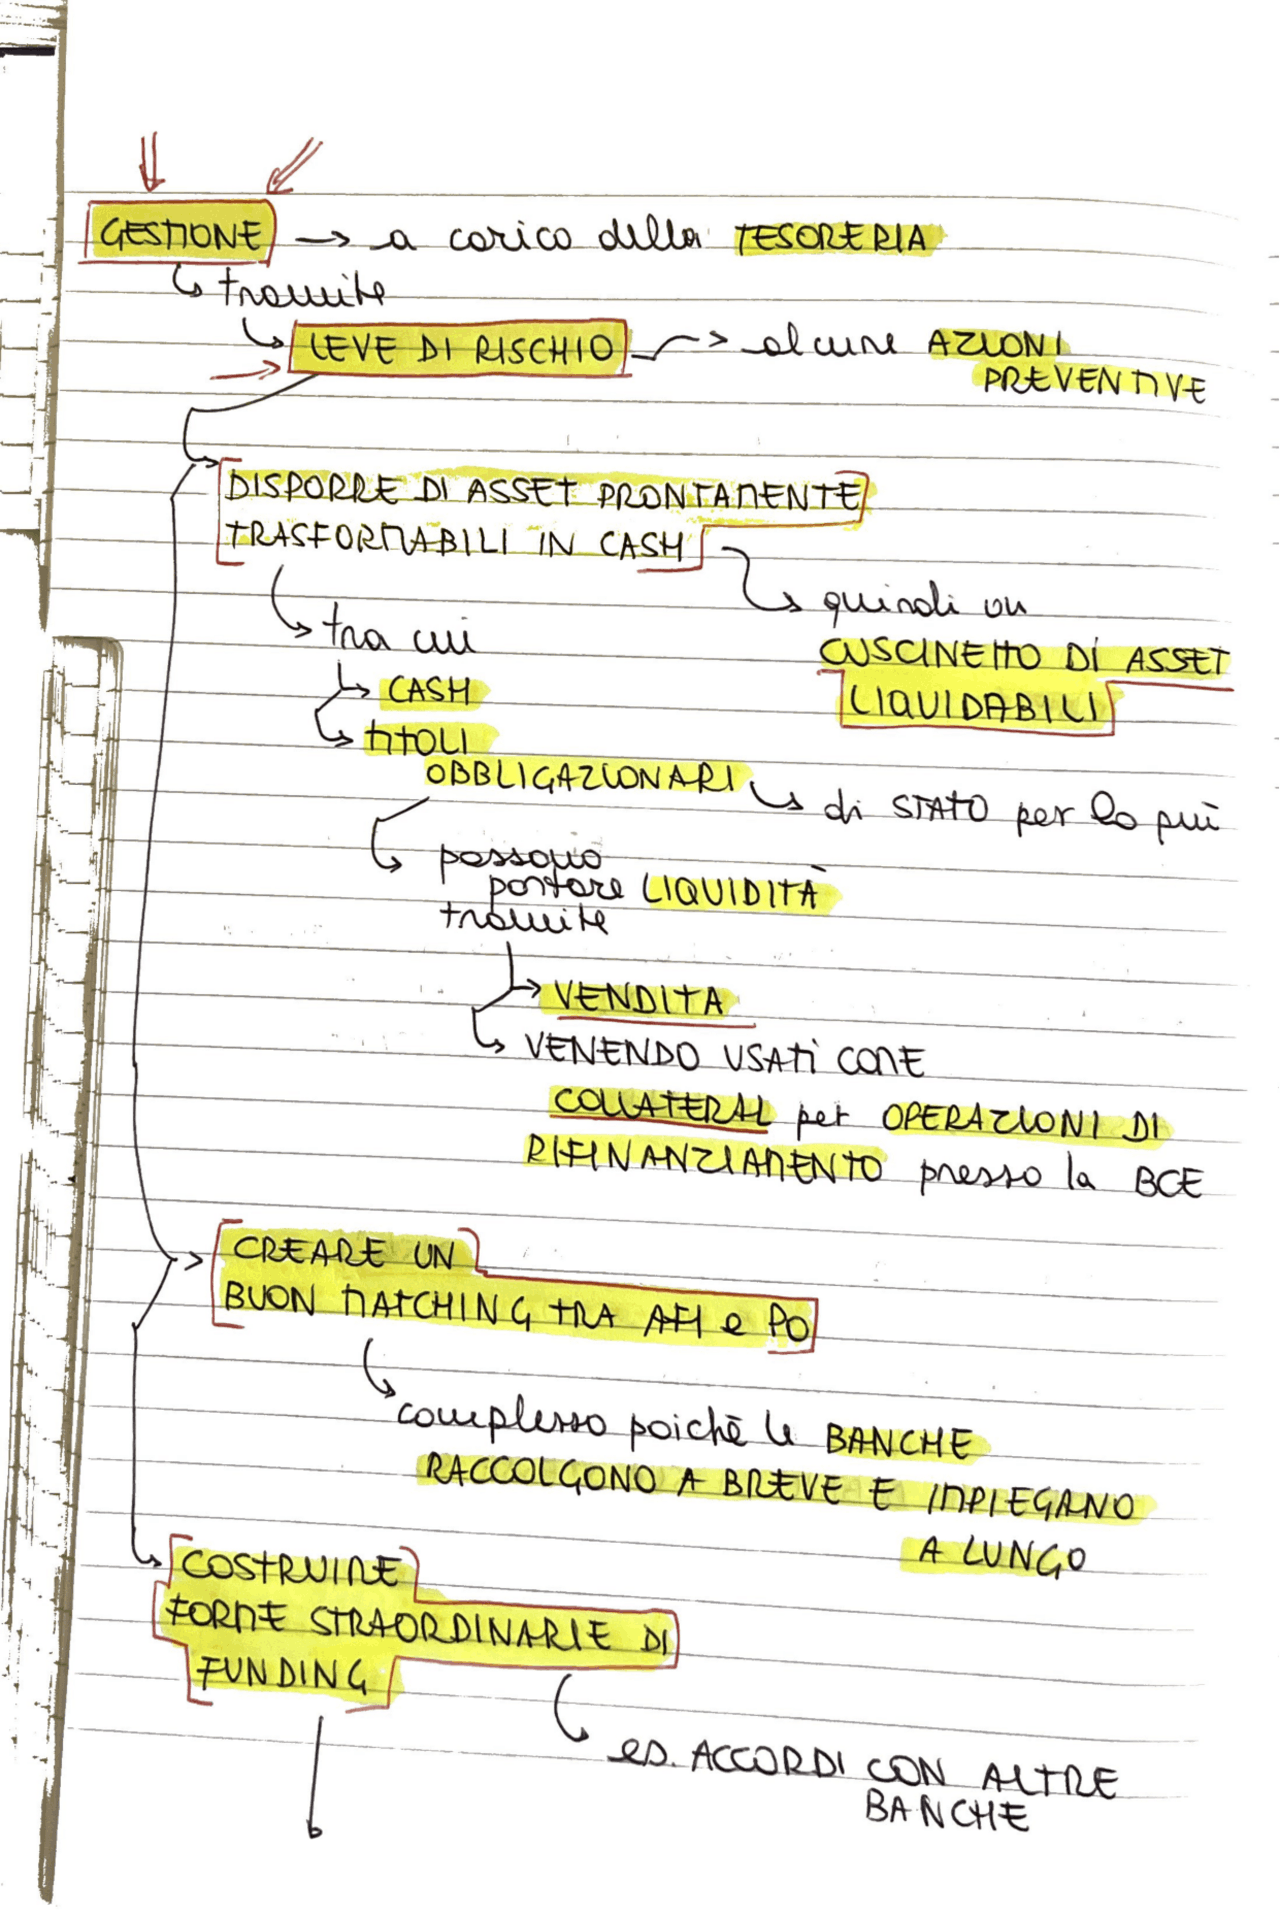 GESTIONE → a carico della TESORERIA
↳ tramite
↳ LEVE DI RISCHIO → alcune AZIONI
PREVENTIVE
DISPORRE DI ASSET PRONTAMENTE
TRASFORMABILI IN CASH
↳ quindi un
↳ tra cui
CUSCINETTO DI ASSET
↳ CASH
LIQUIDABILI
↳ TITOLI
OBBLIGAZIONARI ↳ di STATO per lo più
↳ possono
portare LIQUIDITÀ
tramite
↳ VENDITA
↳ VENENDO USATI COME
COLLATERAL per OPERAZIONI DI
RIFINANZIAMENTO presso la BCE
CREARE UN
BUON MATCHING TRA AFI e PO
↳ complesso poichè le BANCHE
RACCOLGONO A BREVE E IMPIEGANO
A LUNGO
COSTRUIRE
FORME STRAORDINARIE DI
FUNDING
↳ es. ACCORDI CON ALTRE
BANCHE